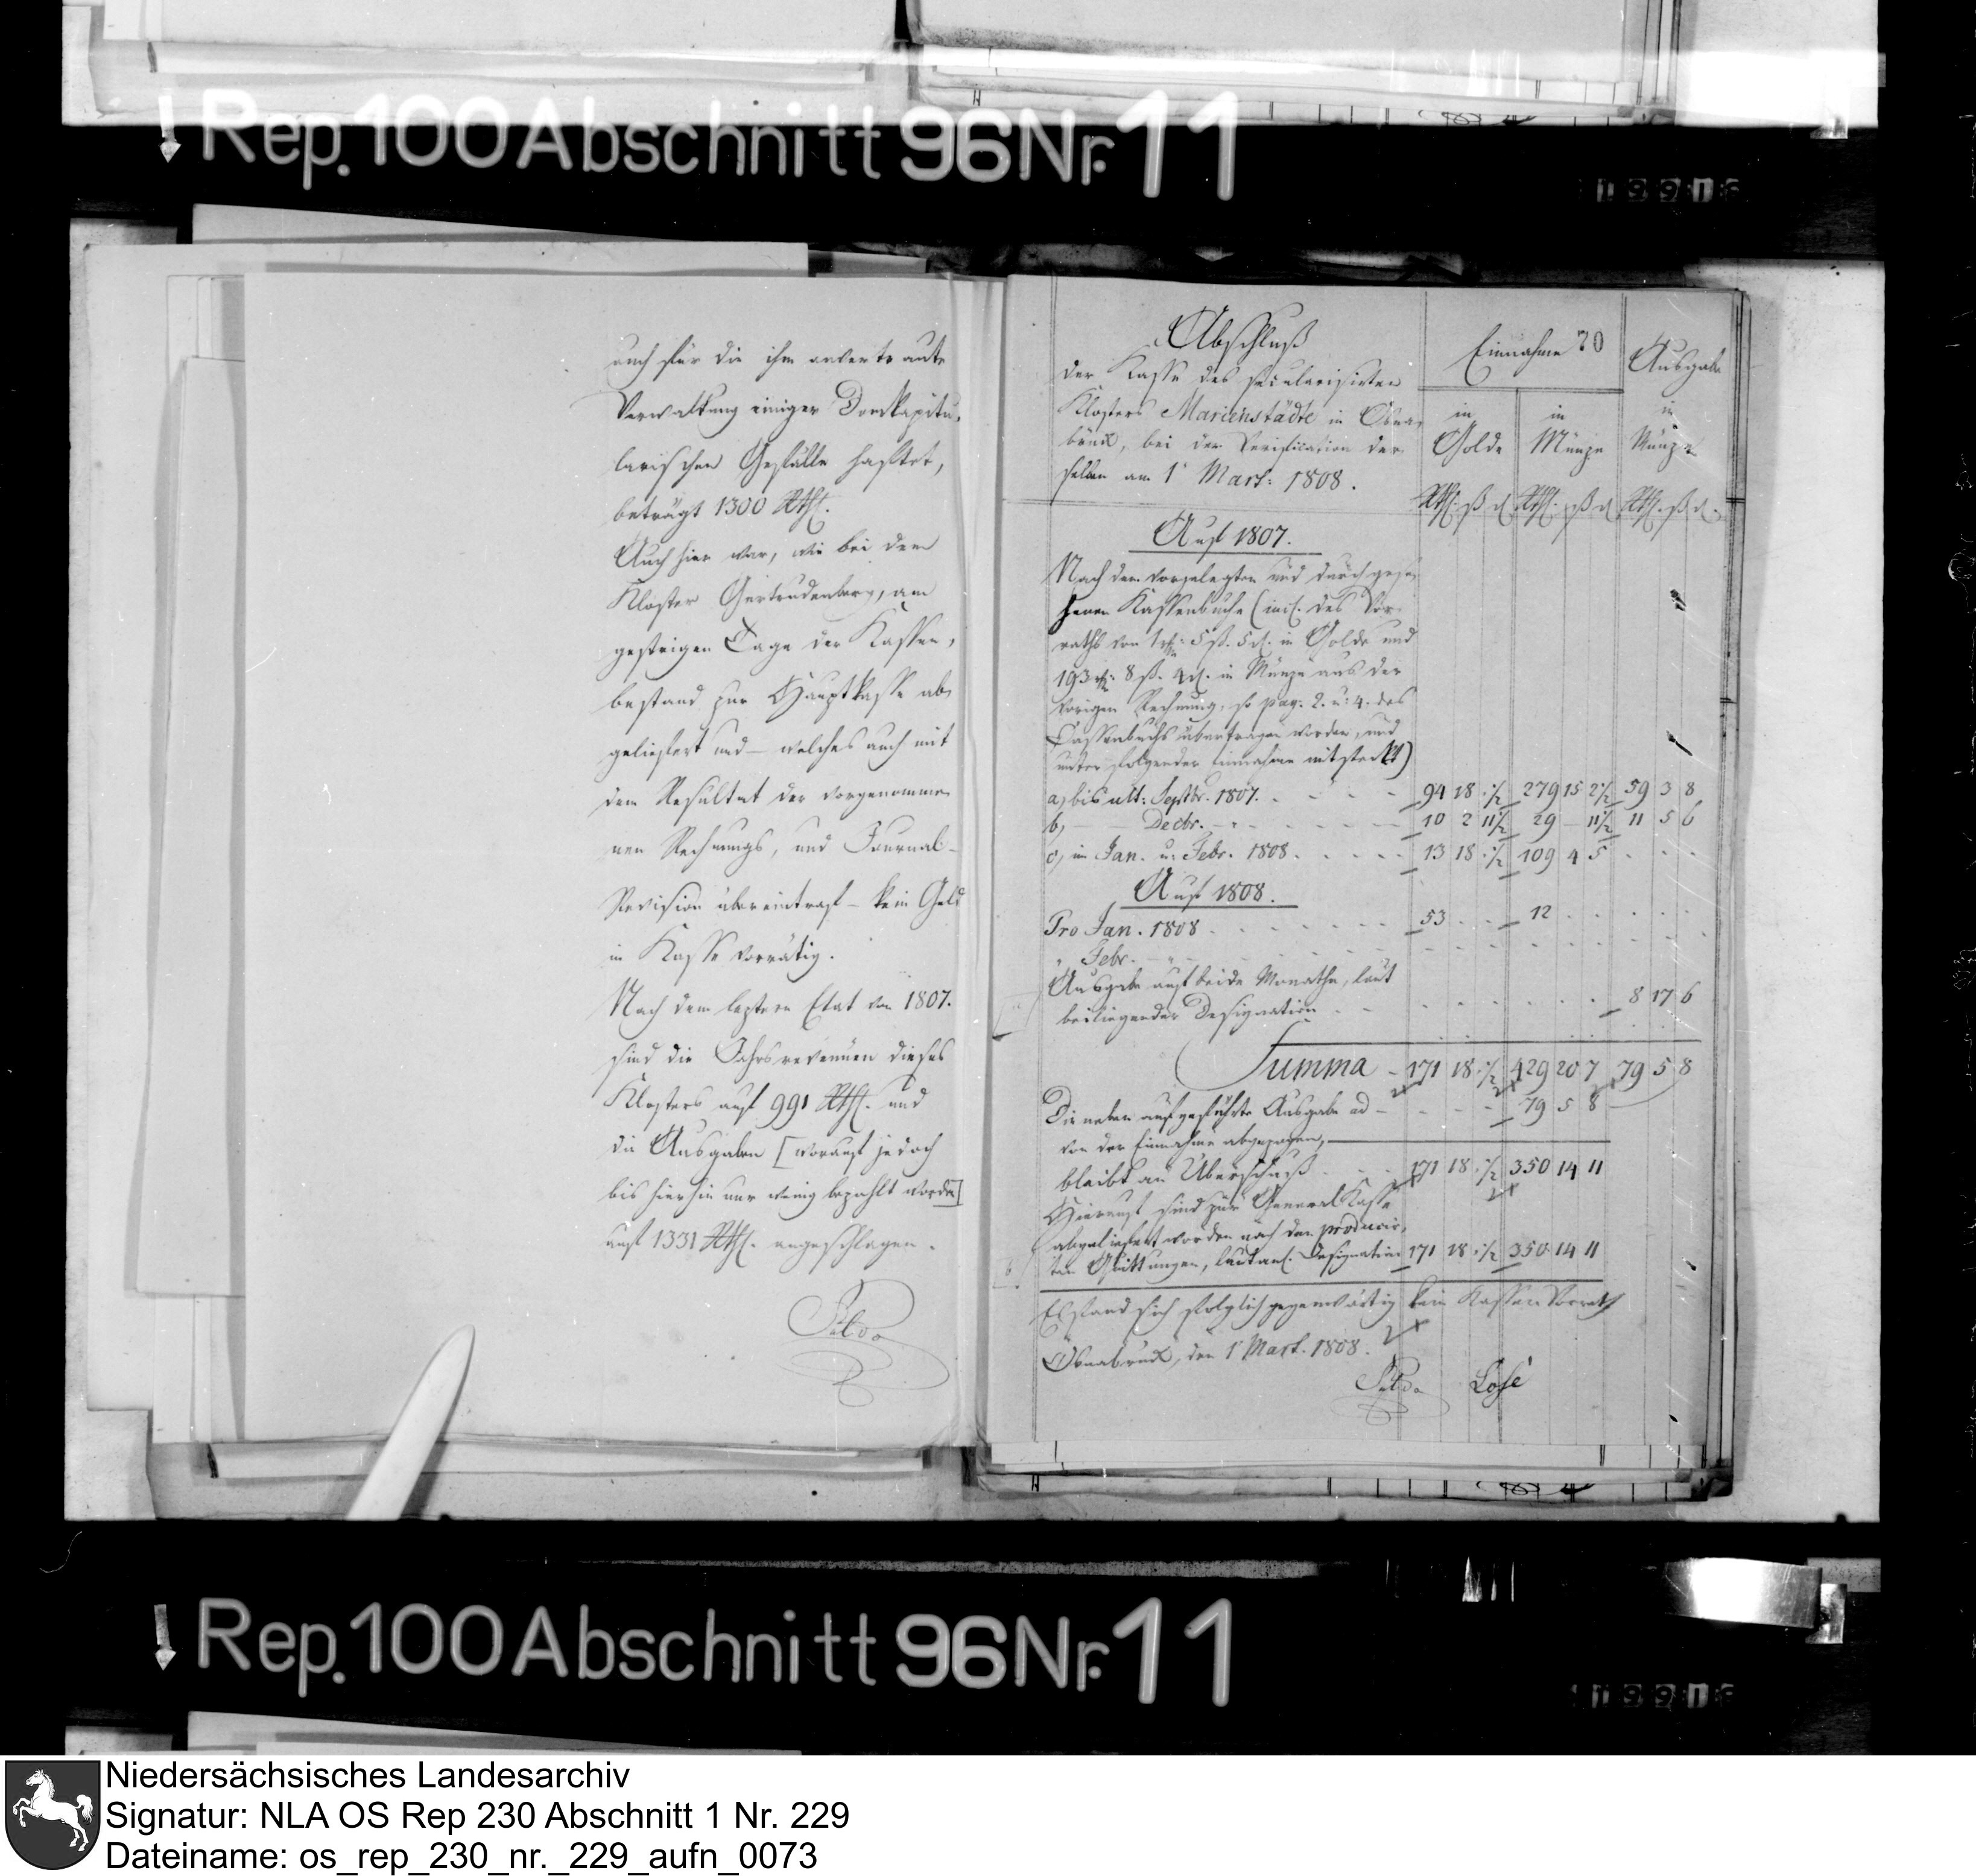 Rep. 100 Abschnitt 96 Nr. 11
auch für die ihm anvertraute
Verwaltung einiger Domkapitu-
larischen Gefälle haftet,
beträgt 1300 Rthl.
Auch hier war, wie bei dem
Kloster Gertrudenberg, am
gestrigen Tage der Kassen-
bestand zur Hauptkasse ab-
geliefert und – welches auch mit
dem Resultat der vorgenomme-
nen Rechnungs, und Journal-
Revision übereintraf – kein Geld
in Kasse vorrätig.
Nach dem leztern Etat von 1807.
sind die Jahrsrevenüen dieses
Klosters auf 991 Rthl. und
die Ausgaben [worauf jedoch
bis hierhin nur wenig bezahlt worden]
auf 1331 Rthl. angeschlagen.
70
Abschluß
der Kasse des secularisirten
Klosters Marienstädte in Osna-
brück, bei der Verification der-
selben am 1t Mart: 1808.
Einnahme
Ausgabe
in Golde
in Münze
in Münze
Rthl. ß d. Rthl. ß d Rthl. ß d.
Auf 1807.
Nach dem vorgelegten und durchgese-
henen Kassenbuche (incl. des Vor-
raths von 1 rth: 5 ß. 5 d. in Golde und
193 rth: 8 ß. 4 d. in Münze aus der
vorigen Rechnung, so pag. 2. u: 4. des
Cassenbuchs übertragen worden, und
unter folgender Einnahme mit steckt)
a, bis ult: Septbr. 1807. 94 18 ½ 279 15 2½ 59 3 8
b, — Decbr. 10 2 11½ 29 – 11½ 11 5 6
c, in Jan. u. Febr. 1808. 13 18 ½ 109 4 5
Auf 1808.
Pro Jan. 1808 53 12
" Febr. "
Ausgabe auf beide Monathe, laut
beiliegender Designation 8 17 6
Summa 171 18 ½ 429 20 7 79 5 8
Die neben aufgeführte Ausgabe ad 79 5 8
von der Einnahme abgezogen,
bleibt an Überschuß 171 18 ½ 350 14 11
Hierauf sind zur General Kasse
abgeliefert worden nach den producir-
ten Quittungen, laut anl. Designation 171 18 ½ 350 14 11
Es fand sich folglich gegenwärtig kein Kassen Vorrath
Osnabrück, den 1t Mart. 1808.
Losé
Rep. 100 Abschnitt 96 Nr. 11
Niedersächsisches Landesarchiv
Signatur: NLA OS Rep 230 Abschnitt 1 Nr. 229
Dateiname: os_rep_230_nr._229_aufn_0073